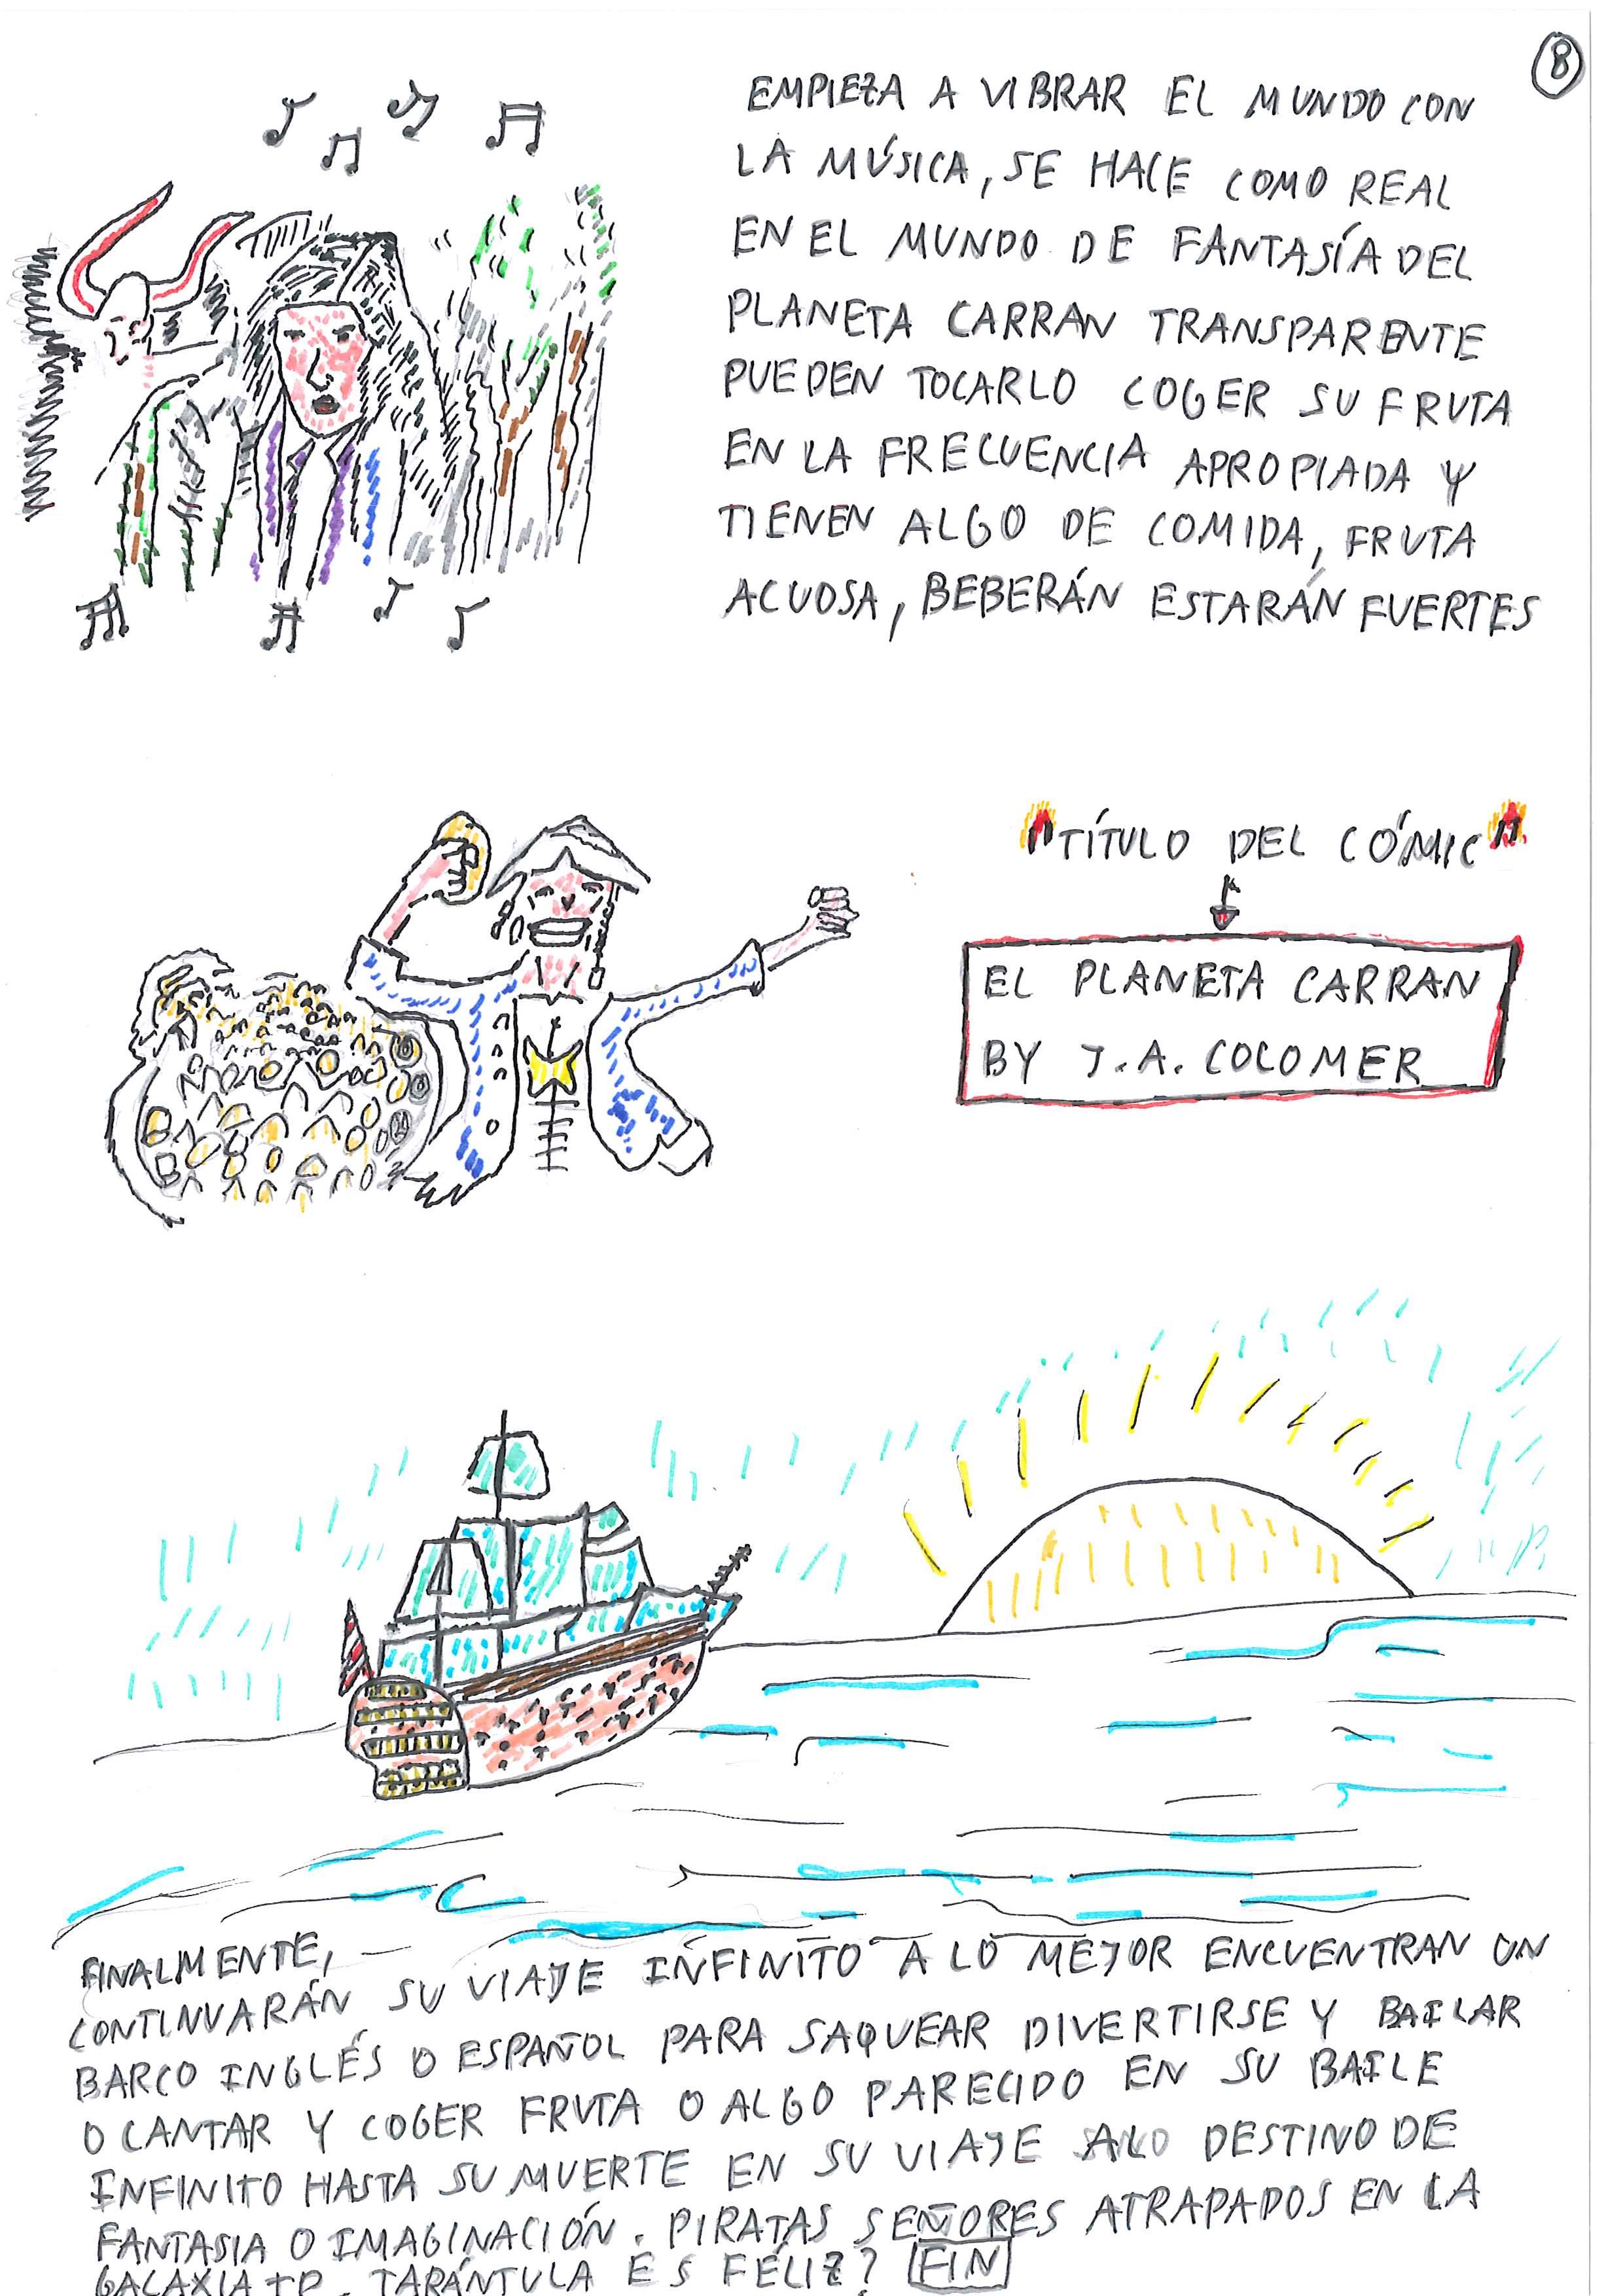 8
EMPIEZA A VIBRAR EL MUNDO CON
LA MÚSICA, SE HACE COMO REAL
EN EL MUNDO DE FANTASÍA DEL
PLANETA CARRAN TRANSPARENTE
PUEDEN TOCARLO COGER SU FRUTA
EN LA FRECUENCIA APROPIADA Y
TIENEN ALGO DE COMIDA, FRUTA
ACUOSA, BEBERÁN ESTARÁN FUERTES
"TÍTULO DEL CÓMIC"
EL PLANETA CARRAN
BY J.A. COLOMER
FINALMENTE,
CONTINUARÁN SU VIAJE INFINITO A LO MEJOR ENCUENTRAN UN
BARCO INGLÉS O ESPAÑOL PARA SAQUEAR DIVERTIRSE Y BAILAR
O CANTAR Y COGER FRUTA O ALGO PARECIDO EN SU BAILE
INFINITO HASTA SU MUERTE EN SU VIAJE DESTINO DE
FANTASIA O IMAGINACIÓN. PIRATAS SEÑORES ATRAPADOS EN LA
GALAXIA TARÁNTULA ES FÉLIZ? FIN